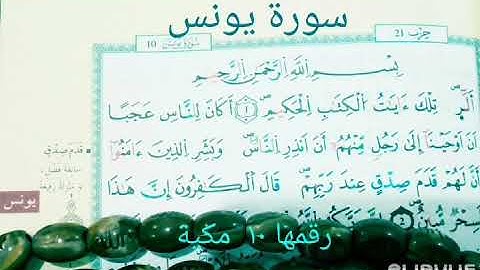 سورة يونس
حزب 21
سورة يونس 10
بِسْمِ اللَّهِ الرَّحْمَٰنِ الرَّحِيمِ
الٓرۚ تِلْكَ ءَايَٰتُ الْكِتَٰبِ الْحَكِيمِ ۝١ أَكَانَ لِلنَّاسِ عَجَبًا
أَنْ أَوْحَيْنَا إِلَىٰ رَجُلٍ مِّنْهُمْ أَنْ أَنذِرِ النَّاسَ وَبَشِّرِ الَّذِينَ ءَامَنُوا
أَنَّ لَهُمْ قَدَمَ صِدْقٍ عِندَ رَبِّهِمْ قَالَ الْكَٰفِرُونَ إِنَّ هَٰذَا
لَسِحْرٌ مُّبِينٌ ۝٢ إِنَّ رَبَّكُمُ
قدم صدق
يونس
رقمها ١٠ مكية